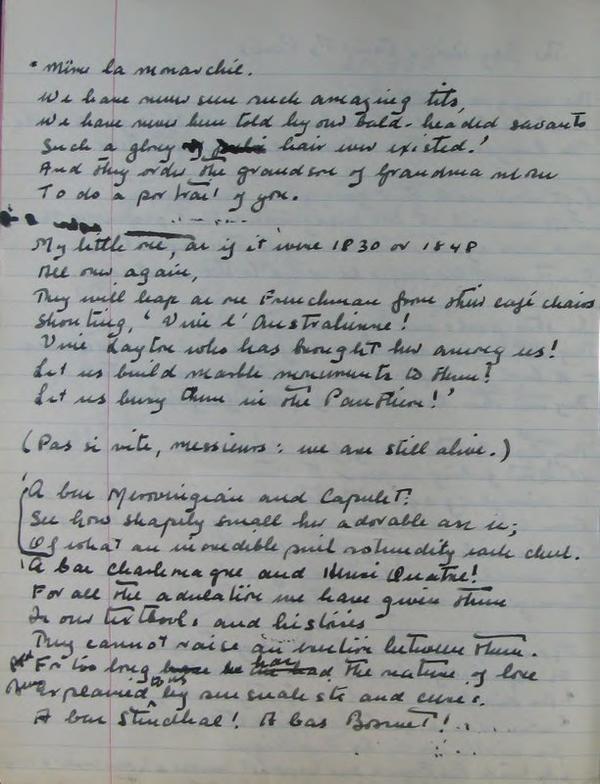 "Mine la monarchie.
We have never seen such amazing tits,
We have never been told by our bald-headed savants
Such a glory of hair ever existed!
And they order the grandson of Grandma
To do a portrait of you.
My little one, as if it were 1830 or 1848
All over again,
They will leap as one Frenchman from their café chairs
Shouting, 'Vive l'Australienne!
Vive Layton who has brought her among us!
Let us build marble monuments to them!
Let us bury them in the Pantheon!'
(Pas si vite, messieurs: we are still alive.)
'A bas Merovingian and Capulet!
See how shapely small her adorable ass is;
Of what an incredible pink rotundity each cheek.
'A bas Charlemagne and Henri Quatre!
For all the adulation we have given them
In our textbooks and histories
They cannot raise an erection between them.
For too long the nature of love
Been explained to us by sensualists and curés.
A bas Stendhal! A bas Bossuet!